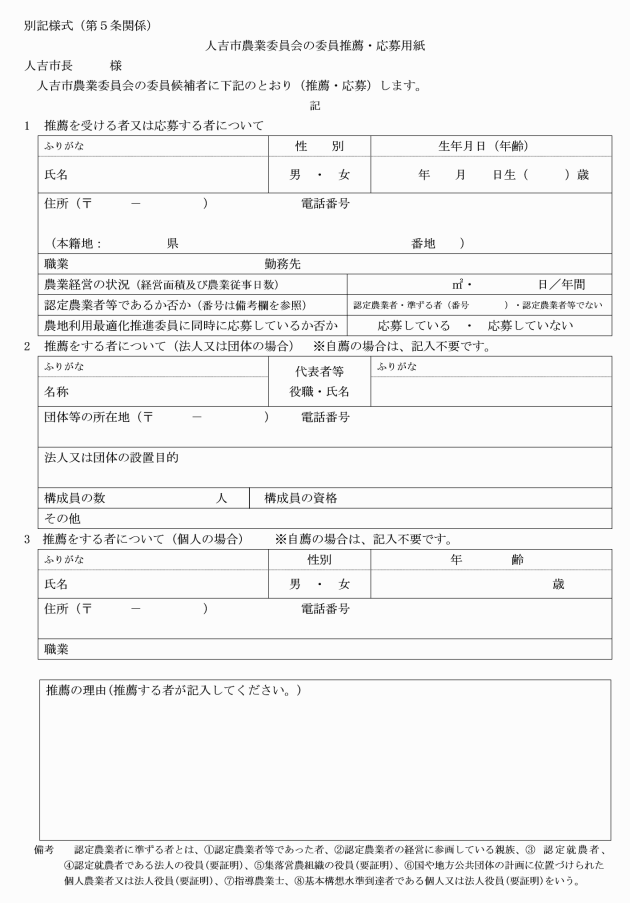 別記様式（第５条関係）
人吉市農業委員会の委員推薦・応募用紙
人吉市長　　　様
人吉市農業委員会の委員候補者に下記のとおり（推薦・応募）します。
記
1　推薦を受ける者又は応募する者について
ふりがな　性　別　生年月日（年齢）
氏名　男　・　女　年　月　日生（　　）歳
住所（〒　　－　　　）　電話番号
（本籍地：　　　県　　　番地　）
職業　勤務先
農業経営の状況（経営面積及び農業従事日数）　㎡・　日／年間
認定農業者等であるか否か（番号は備考欄を参照）　認定農業者・準ずる者（番号　　）・認定農業者等でない
農地利用最適化推進委員に同時に応募しているか否か　応募している　・　応募していない
2　推薦をする者について（法人又は団体の場合）　※自薦の場合は、記入不要です。
ふりがな　代表者等　ふりがな
名称　役職・氏名
団体等の所在地（〒　　－　　　）　電話番号
法人又は団体の設置目的
構成員の数　人　構成員の資格
その他
3　推薦をする者について（個人の場合）　※自薦の場合は、記入不要です。
ふりがな　性別　年　齢
氏名　男　・　女　歳
住所（〒　　－　　　）　電話番号
職業
推薦の理由(推薦する者が記入してください。)
備考　認定農業者に準ずる者とは、①認定農業者等であった者、②認定農業者の経営に参画している親族、③　認定就農者、
④認定就農者である法人の役員(要証明)、⑤集落営農組織の役員(要証明)、⑥国や地方公共団体の計画に位置づけられた
個人農業者又は法人役員(要証明)、⑦指導農業士、⑧基本構想水準到達者である個人又は法人役員(要証明)をいう。